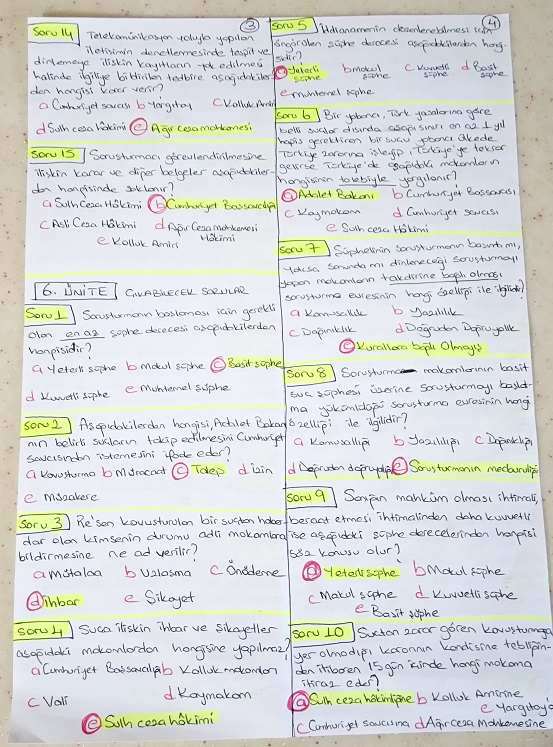 3
Soru 14 Telekomünikasyon yoluyla yapılan
iletişimin denetlenmesinde tespit ve
dinlemeye ilişkin kayıtların yok edilmesi
halinde ilgiliye bildirilen tedbire aşağıdakiler
den hangisi karar verir?
a Cumhuriyet savcısı b Yargıtay c Kolluk Amiri
d Sulh ceza hâkimi e Ağır ceza mahkemesi
Soru 15 Soruşturmacı görevlendirilmesine
ilişkin karar ve diğer belgeler aşağıdakiler-
den hangisinde saklanır?
a Sulh Ceza Hâkimi b Cumhuriyet Başsavcılığı
c Asli Ceza Hâkimi d Ağır Ceza Mahkemesi
e Kolluk Amiri Hâkimi
6. ÜNİTE ÇIKABİLECEK SORULAR
Soru 1 Soruşturmanın başlaması için gerekli
olan en az şüphe derecesi aşağıdakilerden
hangisidir?
a Yeterli şüphe b Makul şüphe c Basit şüphe
d Kuvvetli şüphe e Muhtemel şüphe
Soru 2 Aşağıdakilerden hangisi, Adalet Bakanı
nın belirli suçların takip edilmesini Cumhuriyet
savcısından istemesini ifade eder?
a Kovuşturma b Müracaat c Talep d izin
e Müzakere
Soru 3 Re'sen kovuşturulan bir suçtan haber-
dar olan kimsenin durumu adli makamlara
bildirmesine ne ad verilir?
a Mütalaa b Uzlaşma c Önödeme
d ihbar e Şikayet
Soru 4 Suça ilişkin ihbar ve şikayetler
aşağıdaki makamlardan hangisine yapılmaz?
a Cumhuriyet Başsavcılığı b Kolluk makamları
c Vali d Kaymakam
e Sulh ceza hâkimi
4
Soru 5 İddianamenin düzenlenebilmesi için
öngörülen şüphe derecesi aşağıdakilerden hangi-
sidir?
a Yeterli şüphe b makul şüphe c Kuvvetli şüphe d Basit şüphe
e muhtemel şüphe
Soru 6 Bir yabancı, Türk yasalarına göre
belli suçlar dışında aşağı sınırı en az 1 yıl
hapis gerektiren bir suçu yabancı ülkede
Türkiye zararına işleyip, Türkiye'ye tekrar
gelirse Türkiye'de aşağıdaki makamların
hangisinin talebiyle yargılanır?
a Adalet Bakanı b Cumhuriyet Başsavcısı
c Kaymakam d Cumhuriyet savcısı
e Sulh ceza Hâkimi
Soru 7 Şüphelinin soruşturmanın başında mı,
yoksa sonunda mı dinleneceği soruşturmayı
yapan makamların takdirine bağlı olması
soruşturma evresinin hangi özelliği ile ilgilidir?
a Kamusallık b Yazılılık
c Dağınıklık d Doğrudan Doğruyalık
e Kurallara bağlı Olmayış
Soru 8 Soruşturma makamlarının basit
suç şüphesi üzerine soruşturmayı başlat-
ma yükümlülüğü soruşturma evresinin hangi
özelliği ile ilgilidir?
a Kamusallığı b Yazılılığı c Dağınıklığı
d Doğrudan doğruyalığı e Soruşturmanın mecburiliği
Soru 9 Sanığın mahkûm olması ihtimali,
beraat etmesi ihtimalinden daha kuvvetli
ise aşağıdaki şüphe derecelerinden hangisi
söz konusu olur?
a Yeterli şüphe b Makul şüphe
c Makul şüphe d Kuvvetli şüphe
e Basit şüphe
Soru 10 Suçtan zarar gören kovuşturmaya
yer olmadığı kararının kendisine tebliğin-
den itibaren 15 gün içinde hangi makama
itiraz eder?
a Sulh ceza hâkimliğine b Kolluk Amirine
e Yargıtay'a
c Cumhuriyet savcısına d Ağır Ceza Mahkemesine